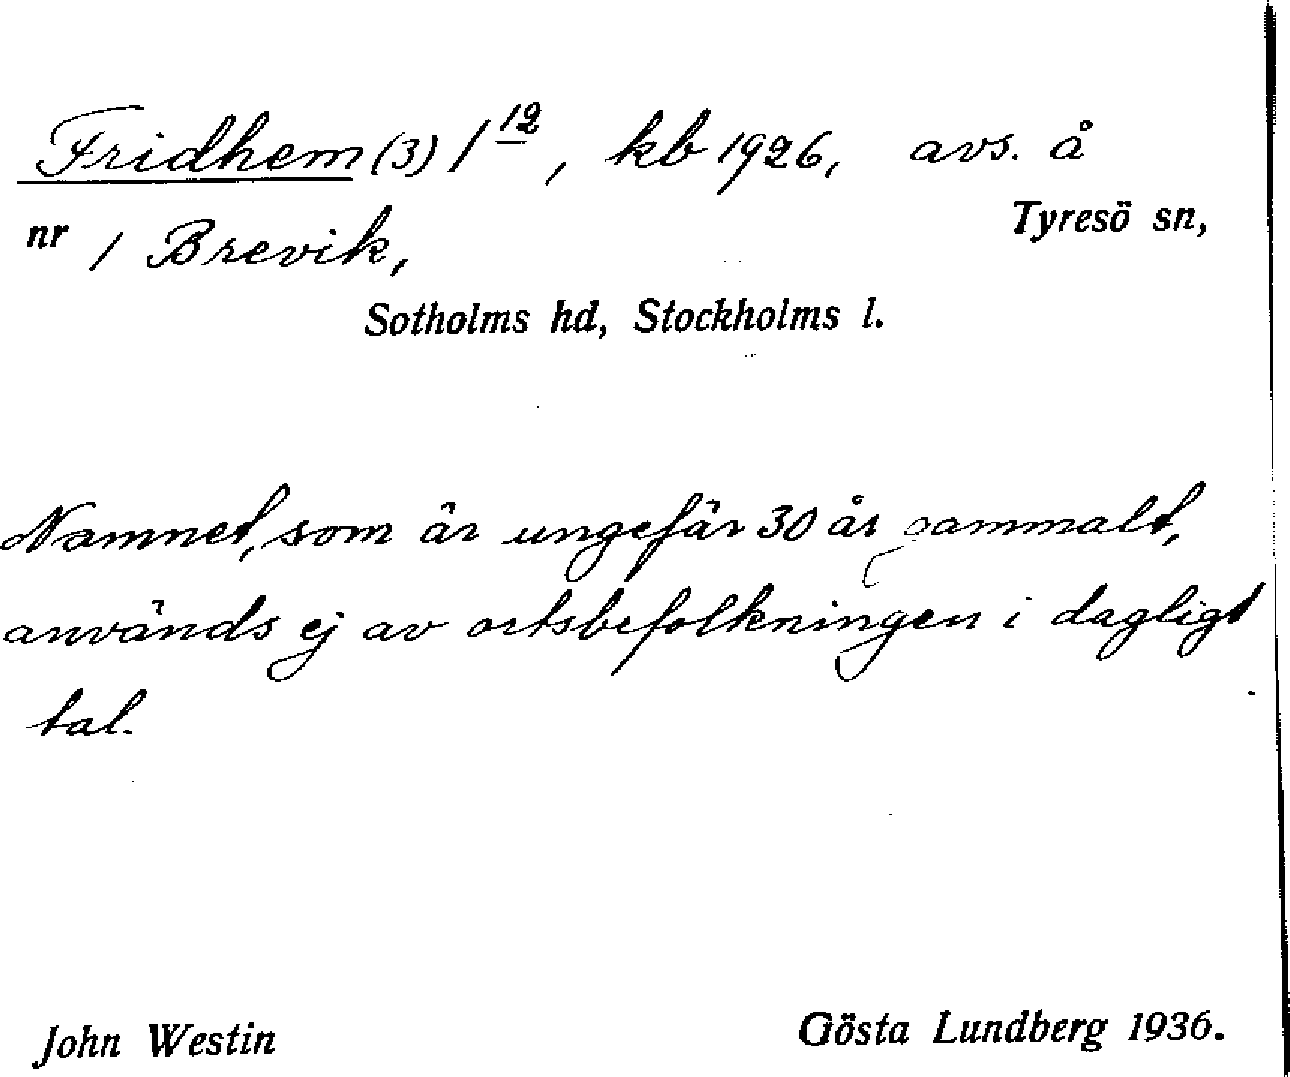 Fridhem (3) 1 12, kb 1926, avs. å
Tyresö sn,
nr 1 Brevik,
Sotholms hd, Stockholms l.
Namnet, som är ungefär 30 år gammalt,
används ej av ortsbefolkningen i dagligt
tal.
John Westin
Gösta Lundberg 1936.